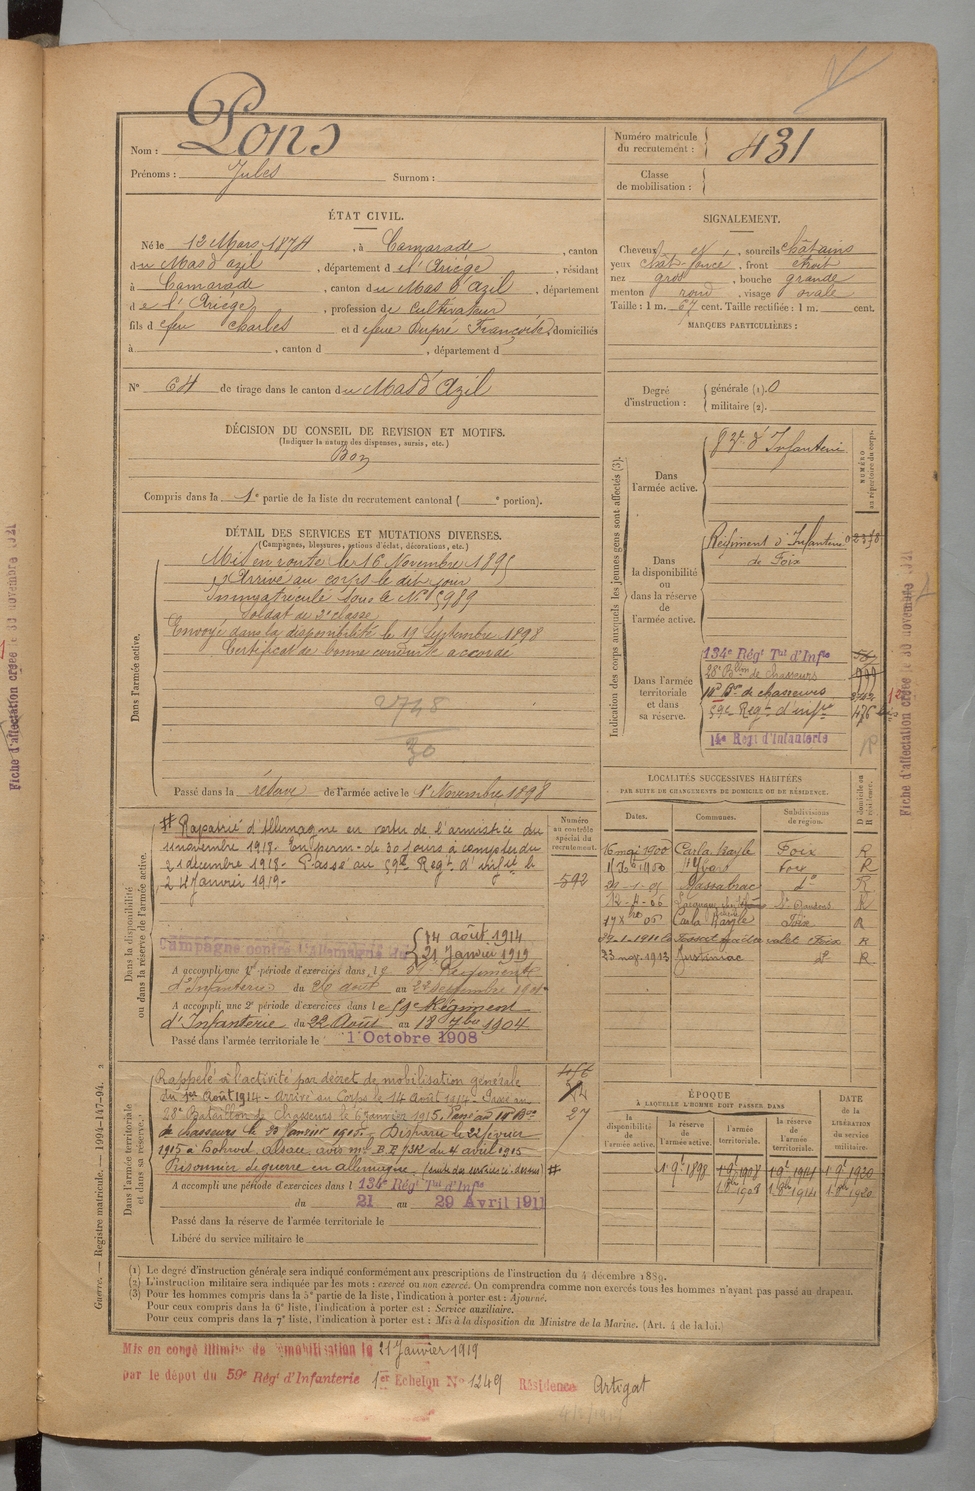 Nom : Pons
Prénoms : Jules Surnom :
Numéro matricule du recrutement : 431
Classe de mobilisation :
ÉTAT CIVIL.
Né le 12 Mars 1874, à Camarade, canton
du Mas d'azil, département de l'Ariége, résidant
à Camarade, canton du Mas d'Azil, département
de l'Ariége, profession de Cultivateur
fils de feu Charles et de feue Dupré Françoise, domiciliés
à , canton d , département d
N° 64 de tirage dans le canton du Mas d'Azil
SIGNALEMENT.
Cheveux et, sourcils châtains
yeux chât-foncé, front étroit
nez gros, bouche grande
menton rond, visage ovale
Taille : 1 m. 67 cent. Taille rectifiée : 1 m. cent.
MARQUES PARTICULIÈRES :
Degré d'instruction : générale (1). 0
militaire (2).
DÉCISION DU CONSEIL DE REVISION ET MOTIFS.
(Indiquer la nature des dispenses, sursis, etc.)
Bon
Compris dans la 1e partie de la liste du recrutement cantonal ( e portion).
DÉTAIL DES SERVICES ET MUTATIONS DIVERSES.
(Campagnes, blessures, actions d'éclat, décorations, etc.)
Dans l'armée active.
Mis en route le 16 Novembre 1895
Arrivé au corps le dit jour
Immatriculé sous le N° 5989
Soldat de 2e classe
Envoyé dans la disponibilité le 19 Septembre 1898
Certificat de bonne conduite accordé
2748
30
Passé dans la réserve de l'armée active le 1r Novembre 1898
Indication des corps auxquels les jeunes gens sont affectés (3).
NUMÉRO au répertoire du corps.
Dans l'armée active.
d'Infanterie
Dans la disponibilité ou dans la réserve de l'armée active.
Régiment d'Infanterie
de Foix
Dans l'armée territoriale et dans sa réserve.
134e Régt Tal d'Infie
28e Bllon de chasseurs
de chasseurs
59e Regt d'infie 476
14e Régt d'Infanterie
Dans la disponibilité ou dans la réserve de l'armée active.
Numéro au contrôle spécial du recrutement.
592
# Rapatrié d'Allemagne en vertu de l'armistice du
11 novembre 1918. En perm. de 30 jours à compter du
21 décembre 1918. Passé au 59e Regt d'infie le
24 Janvier 1919.
Campagne contre l'allemagne du 14 août 1914
21 Janvier 1919
A accompli une 1re période d'exercices dans le Régiment
d'Infanterie du 26 août au 22 septembre
A accompli une 2e période d'exercices dans le 59e Régiment
d'Infanterie du 22 Août au 18 7bre 1904
Passé dans l'armée territoriale le 1 Octobre 1908
LOCALITÉS SUCCESSIVES HABITÉES
PAR SUITE DE CHANGEMENTS DE DOMICILE OU DE RÉSIDENCE.
Dates. Communes. Subdivisions de région. D domicile ou R résidence.
16 mai 1900 Carla Bayle Foix R
Foix R
Massabrac do R
R
05 Carla Bayle Foix R
Foix R
23 nov. 1913 Justiniac do R
Dans l'armée territoriale et dans sa réserve.
Rappelé à l'activité par décret de mobilisation générale
du 1er Août 1914 - Arrivé au Corps le 14 Août 1914. Passé au
28e Bataillon de Chasseurs le 6 janvier 1915. Passé au
de chasseurs le 20 Janvier 1915. Disparu le 22 février
1915 à Alsace, avis ml du 4 avril 1915
Prisonnier de guerre en allemagne, (suite des services ci-dessus) #
27
A accompli une période d'exercices dans l 134e Régt Tal d'Infie
du 21 au 29 Avril 1911
Passé dans la réserve de l'armée territoriale le
Libéré du service militaire le
ÉPOQUE
À LAQUELLE L'HOMME DOIT PASSER DANS
la disponibilité de l'armée active. la réserve de l'armée active. l'armée territoriale. la réserve de l'armée territoriale. DATE de la LIBÉRATION du service militaire.
1 9t 1898 1 9t 1908 1 9t 1914 1 9t 1920
1 8bre 1908 1 8bre 1914 1 8bre 1920
(1) Le degré d'instruction générale sera indiqué conformément aux prescriptions de l'instruction du 4 décembre 1889.
(2) L'instruction militaire sera indiquée par les mots : exercé ou non exercé. On comprendra comme non exercés tous les hommes n'ayant pas passé au drapeau.
(3) Pour les hommes compris dans la 5e partie de la liste, l'indication à porter est : Ajourné.
Pour ceux compris dans la 6e liste, l'indication à porter est : Service auxiliaire.
Pour ceux compris dans la 7e liste, l'indication à porter est : Mis à la disposition du Ministre de la Marine. (Art. 4 de la loi.)
Guerre. — Registre matricule. — 1994-147-94.
Mis en congé illimité de démobilisation le 21 Janvier 1919
par le dépôt du 59e Régt d'Infanterie 1er Echelon N° 1249 Résidence Artigat
Fiche d'affectation créée le 30 novembre 1921
Fiche d'affectation créée le 30 novembre 1921